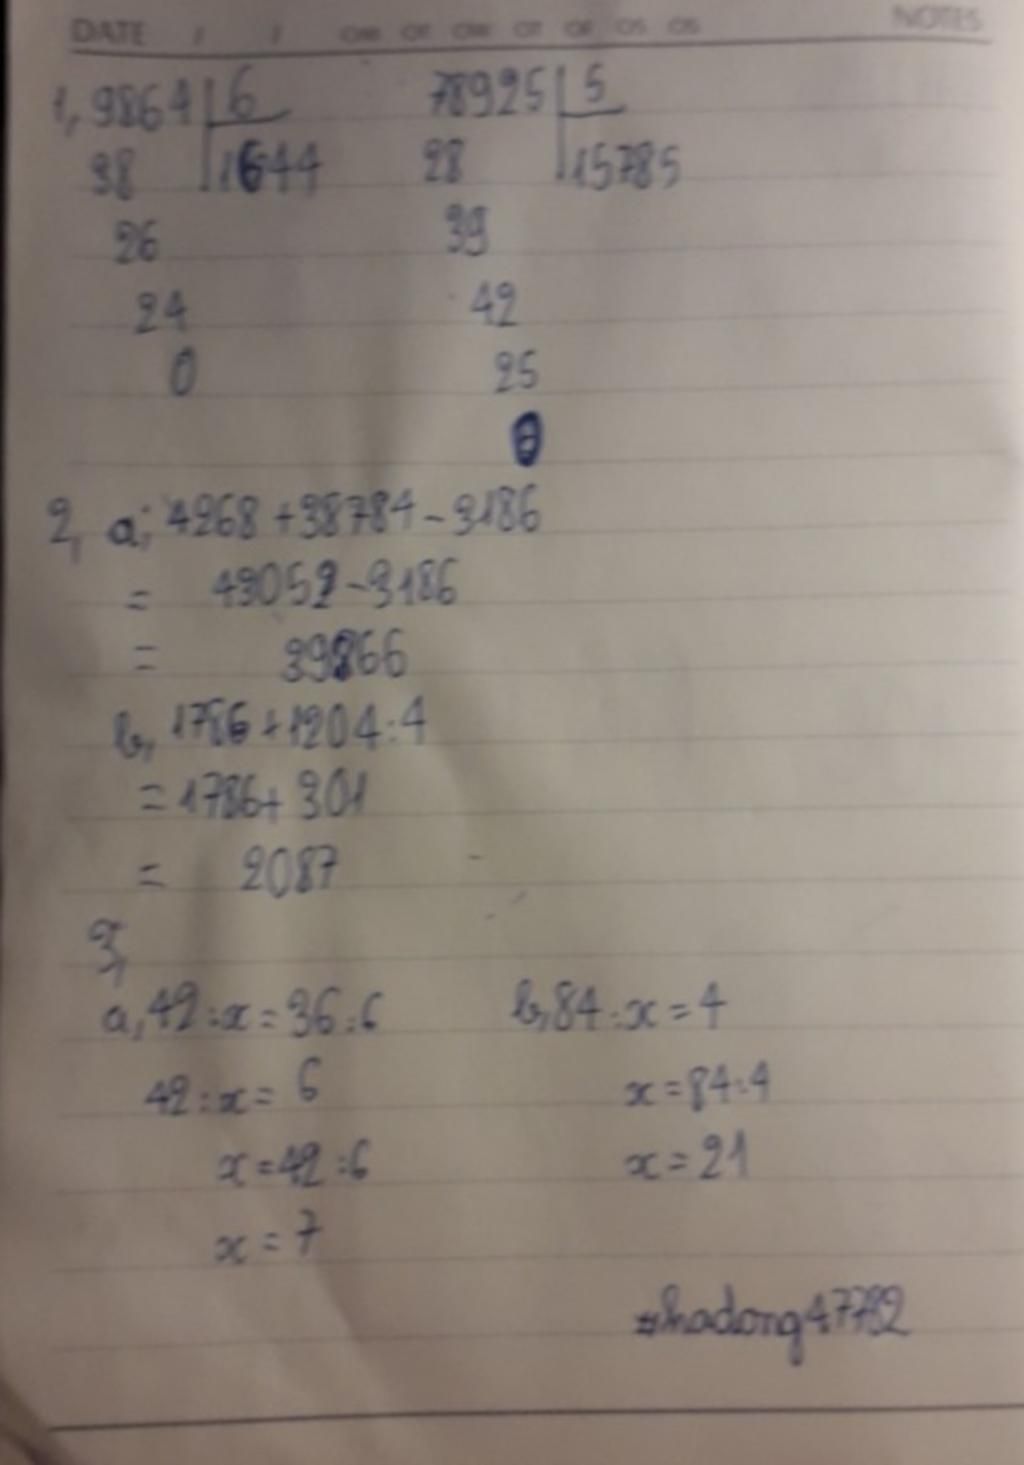 DATE / / NOTES
1, 9864 | 6 78925 | 5
38 1644 28 15785
26 39
24 42
0 25
0
2, a; 4268 + 38784 - 3186
= 43052 - 3186
= 39866
b, 1786 + 1204 : 4
= 1786 + 301
= 2087
3,
a, 42 : x = 36 : 6 b, 84 : x = 4
42 : x = 6 x = 84 : 4
x = 42 : 6 x = 21
x = 7
#hadong47782